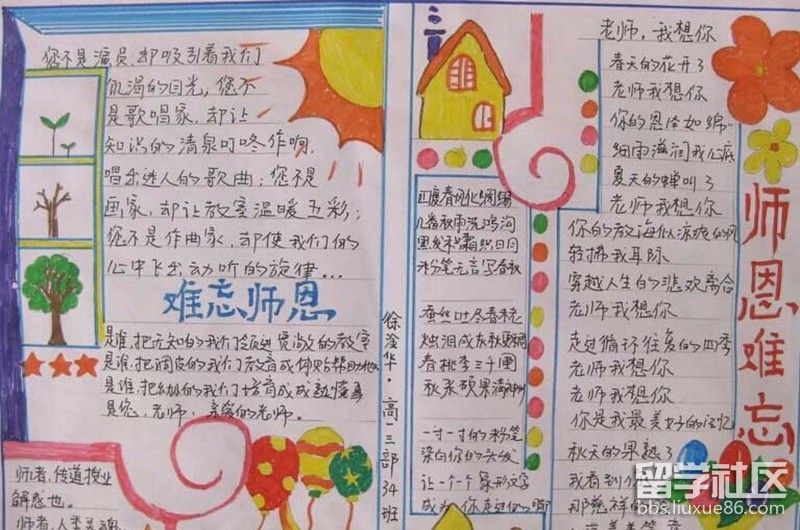 您不是演员,却吸引着我们
饥渴的目光,您不
是歌唱家,却让
知识的清泉叮咚作响,
唱出迷人的歌曲;您不是
画家,却让教室温暖五彩;
您不是作曲家,却使我们的
心中飞出动听的旋律…
难忘师恩
是谁,把无知的我们领进宽敞的教室
是谁,把调皮的我们教育成
是谁,把幼小的我们培育成成熟懂事
是您,老师,亲爱的老师。
师者,传道授业
解惑也。
师者,人类灵魂
徐淦华·高一三部34班
四度春风化绸缪
几番秋雨洗鸿沟
黑发积霜织日月
粉笔无言写春秋
蚕丝吐尽春未老
烛泪成灰秋更稠
春桃李三千圃
秋来硕果满神州
一寸一寸的粉笔
染白你的头发
让一个个象形文字
老师,我想你
春天的花开了
老师我想你
你的恩泽如绵
细雨滋润我心底
夏天的蝉叫了
老师我想你
你的教诲似凉爽的风
轻拂我耳际
穿越人生的悲欢离合
老师我想你
走过循环往复的四季
老师我想你
老师我想你
你是我最美好的记忆
秋天的果熟了
我看到你
那慈祥
师恩难忘
留学社区
bbs.liuxue86.com